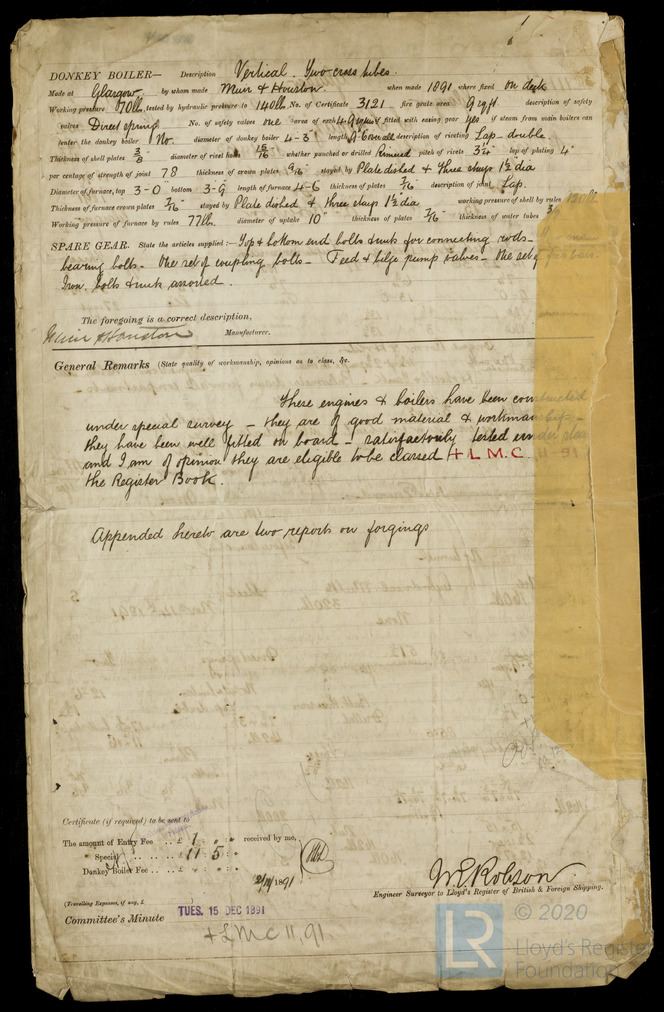 DONKEY BOILER— Description Vertical. Two cross tubes.
Made at Glasgow by whom made Muir & Houston when made 1891 where fixed on deck
Working pressure 70lb tested by hydraulic pressure to 140lb No. of Certificate 3121 fire grate area 9 sqft. description of safety
valves Direct spring No. of safety valves one area of each 4.9 if fitted with easing gear yes if steam from main boilers can
enter the donkey boiler No. diameter of donkey boiler 4-3" length description of riveting Lap-double.
Thickness of shell plates 3/8 diameter of rivet holes 15/16" whether punched or drilled Rimered pitch of rivets lap of plating 4"
per centage of strength of joint 78 thickness of crown plates 9/16 stayed by Plate dished & three stays 1½ dia
Diameter of furnace, top 3-0 bottom 3-9 length of furnace 4-6 thickness of plates 7/16" description of joint Lap.
Thickness of furnace crown plates 7/16" stayed by Plate dished & three stays 1½ dia working pressure of shell by rules
Working pressure of furnace by rules 77lb. diameter of uptake 10" thickness of plates 7/16" thickness of water tubes
SPARE GEAR. State the articles supplied:— Top & bottom end bolts & nuts for connecting rods—
bearing bolts— One set of coupling bolts— Feed & bilge pump valves— One set of
Iron, bolts & nuts assorted.
The foregoing is a correct description,
Muir & Houston Manufacturer.
General Remarks (State quality of workmanship, opinions as to class, &c.
These engines & boilers have been constructed
under special survey — they are of good material & workmanship—
they have been well fitted on board — satisfactorily tested under steam
and I am of opinion they are eligible to be classed + L M.C. 11-91
the Register Book.
Appended hereto are two reports on forgings
Certificate (if required) to be sent to
The amount of Entry Fee .. £ 1 " " received by me,
Special .. .. £ 11 5 "
Donkey Boiler Fee .. .. £ 1891
W.E. Robson
Engineer Surveyor to Lloyd's Register of British & Foreign Shipping.
(Travelling Expenses, if any, £
Committee's Minute TUES. 15 DEC 1891
+ LMC 11,91
LR © 2020
Lloyd's Register
Foundation